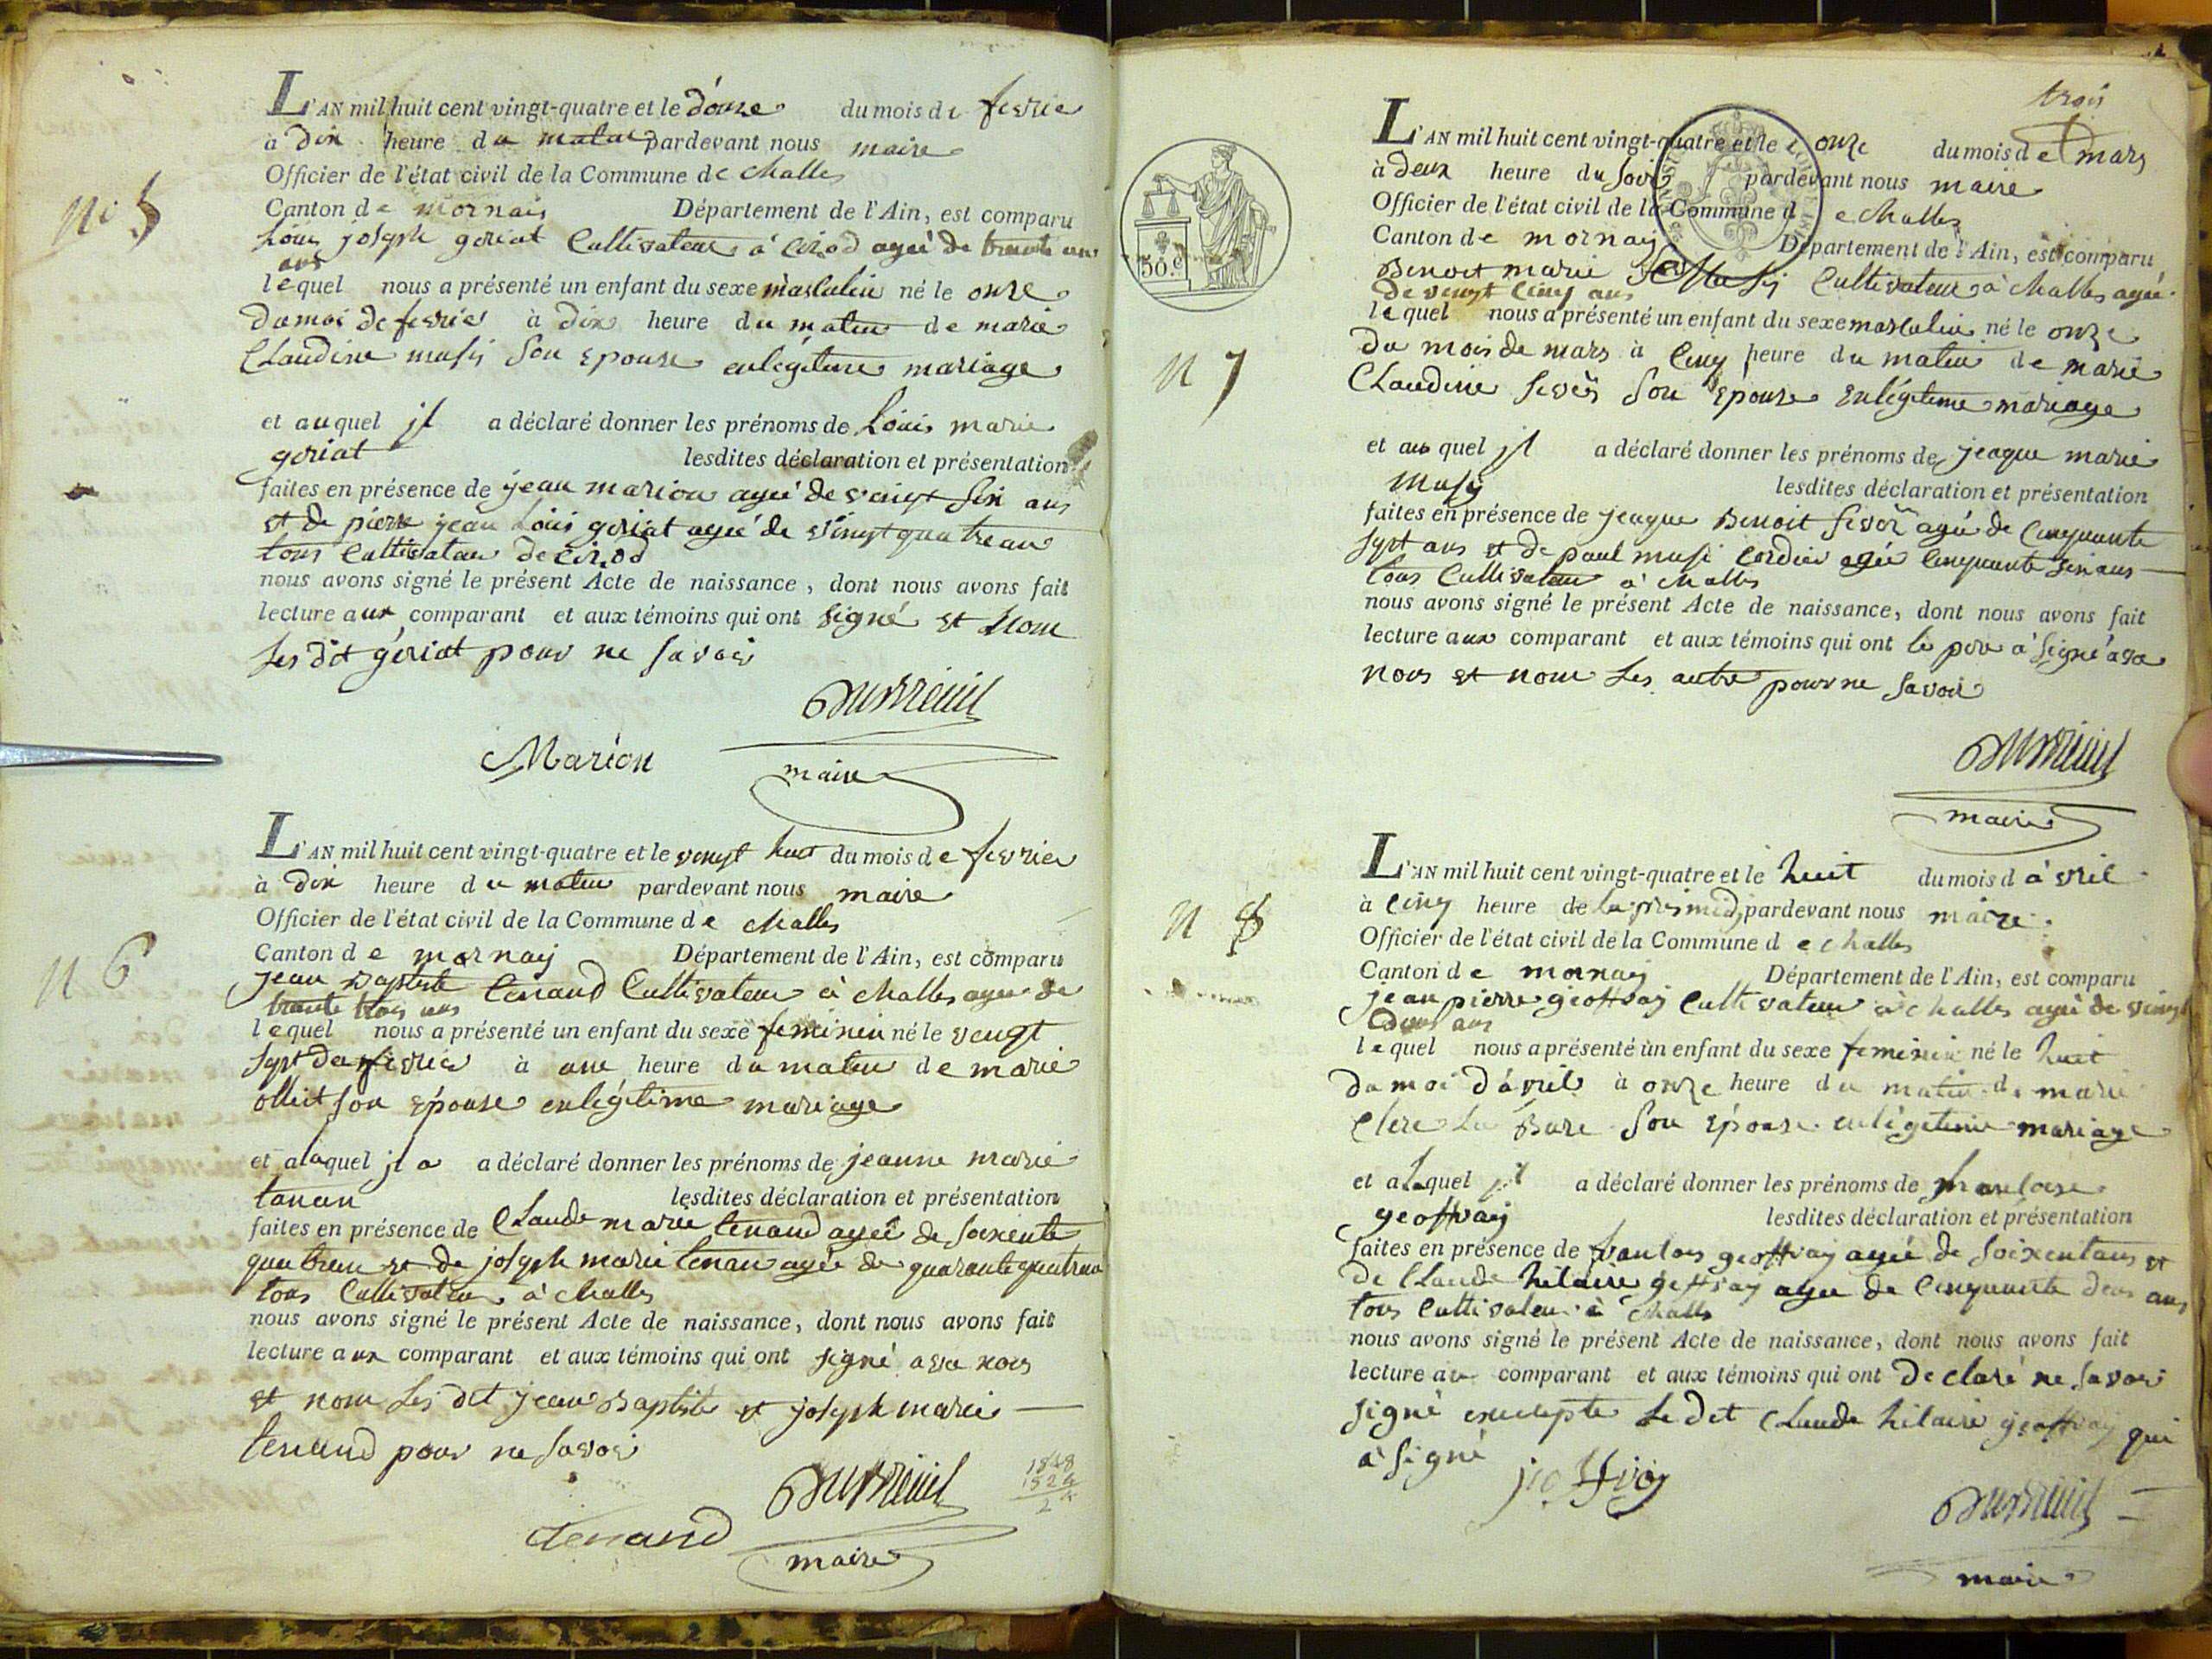 L'AN mil huit cent vingt-quatre et le douze du mois de fevrie
à dix heure du matin pardevant nous maire
Officier de l'état civil de la Commune de challes
Canton de mornais Département de l'Ain, est comparu
Louis joseph goriat Cultivateur à Cirod ageé de trante un
ans
lequel nous a présenté un enfant du sexe masculin né le onze
du moi de fevrie à dix heure du matin de marie
Claudine musy son epouse en légitime mariage
et auquel jl a déclaré donner les prénoms de Louis marie
goriat lesdites déclaration et présentation
faites en présence de jean marion ageé de vingt six ans
et de pierre jean Louis goriat ageé de vingt quatre an
tous Cultivateur de Cirod
nous avons signé le présent Acte de naissance, dont nous avons fait
lecture aux comparant et aux témoins qui ont signé et nom
Les dit goriat pour ne savoir
Dubreuil
Marion
maire
n° 5
L'AN mil huit cent vingt-quatre et le vengt huit du mois de fevrier
à dix heure du matin pardevant nous maire
Officier de l'état civil de la Commune de challes
Canton de mornay Département de l'Ain, est comparu
jean Baptiste tenand Cultivateur à challes agee de
trante trois ans
lequel nous a présenté un enfant du sexe feminin né le vengt
sept de fevrie à une heure du matin de marie
ollict son épouse en légitime mariage
et alaquel jl a a déclaré donner les prénoms de jeanne marie
tanan lesdites déclaration et présentation
faites en présence de Claude marie tenand ageé de soixente
quatre an et de joseph marie tenan ageé de quarante quatre an
tous Cultivateur à challes
nous avons signé le présent Acte de naissance, dont nous avons fait
lecture aux comparant et aux témoins qui ont signé ave nous
et nom les dit jean Baptiste et joseph marie
tenand pour ne savoir
Dubreuil
1848
1824
24
tenand
maire
n 6
trois
L'AN mil huit cent vingt-quatre et le onze du mois de mars
à deux heure du soir pardevant nous maire
Officier de l'état civil de la Commune de challes
Canton de mornay Département de l'Ain, est comparu
Benoit marie Musy Cultivateur à challes ageé
de vengt cinq ans
lequel nous a présenté un enfant du sexe masculin né le onze
du mois de mars à cinq heure du matin de marie
Claudine sevoz son epouse en légitime mariage
et au quel jl a déclaré donner les prénoms de jeaque marie
Musy lesdites déclaration et présentation
faites en présence de jeaque Benoit sevoz ageé de cinquante
sept ans et de paul musi cordier ageé cinquante six ans
tous Cultivateur à challes
nous avons signé le présent Acte de naissance, dont nous avons fait
lecture aux comparant et aux témoins qui ont le pere à signé ave
nous et nom les autre pour ne savoir
Dubreuil
maire
50.c
n 7
L'AN mil huit cent vingt-quatre et le huit du mois d avril
à cinq heure de la presmidi pardevant nous maire
Officier de l'état civil de la Commune de challes
Canton de mornay Département de l'Ain, est comparu
jean pierre geoffray Cultivateur à challes ageé de vingt
deux ans
lequel nous a présenté un enfant du sexe feminin né le huit
du moi d'avril à onze heure du matin de marie
Clere son épouse en légitime mariage
et alaquel jl a déclaré donner les prénoms de
geoffray lesdites déclaration et présentation
faites en présence de geoffray ageé de soixent ans et
de Claude hilaire geffray agee de cinquante deux ans
tous Cultivateur à challes
nous avons signé le présent Acte de naissance, dont nous avons fait
lecture au comparant et aux témoins qui ont declaré ne savoir
signé excepte le dit Claude hilaire geoffray qui
à signé
Dubreuil
maire
n 8